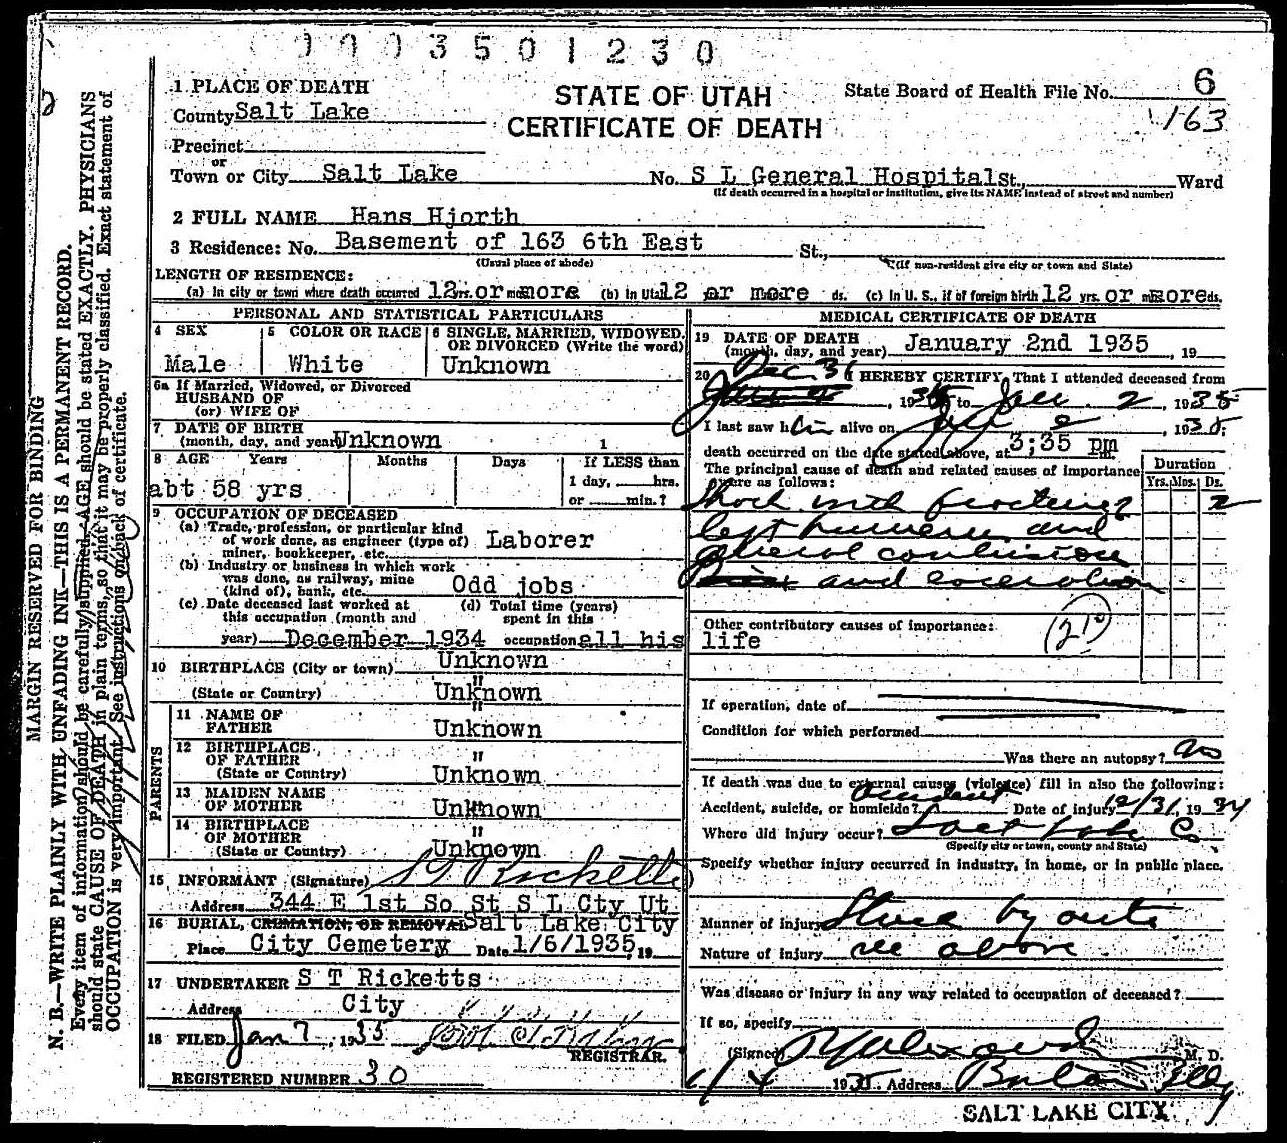 0003501230
1 PLACE OF DEATH
STATE OF UTAH
CERTIFICATE OF DEATH
State Board of Health File No. 6
163
County Salt Lake
Precinct
or
Town or City Salt Lake No. S L General Hospital St., Ward
(If death occurred in a hospital or institution, give its NAME instead of street and number)
2 FULL NAME Hans Hjorth
3 Residence: No. Basement of 163 6th East St.,
(Usual place of abode) (If non-resident give city or town and State)
LENGTH OF RESIDENCE:
(a) In city or town where death occurred 12 yrs. or more (b) in Utah 12 or more ds. (c) In U. S., if of foreign birth 12 yrs. or more ds.
PERSONAL AND STATISTICAL PARTICULARS
4 SEX Male
5 COLOR OR RACE White
6 SINGLE, MARRIED, WIDOWED, OR DIVORCED (Write the word) Unknown
6a If Married, Widowed, or Divorced
HUSBAND OF
(or) WIFE OF
7 DATE OF BIRTH
(month, day, and year) Unknown 1
8 AGE Years Months Days If LESS than
1 day, hrs.
or min.?
abt 58 yrs
9 OCCUPATION OF DECEASED
(a) Trade, profession, or particular kind
of work done, as engineer (type of) Laborer
miner, bookkeeper, etc.
(b) Industry or business in which work
was done, as railway, mine
(kind of), bank, etc. Odd jobs
(c) Date deceased last worked at
this occupation (month and
year) December 1934
(d) Total time (years)
spent in this
occupation all his
10 BIRTHPLACE (City or town) Unknown
(State or Country) " Unknown
PARENTS
11 NAME OF
FATHER " Unknown
12 BIRTHPLACE
OF FATHER "
(State or Country) Unknown
13 MAIDEN NAME
OF MOTHER " Unknown
14 BIRTHPLACE
OF MOTHER "
(State or Country) Unknown
15 INFORMANT (Signature) S T Ricketts
Address 344 E 1st So St S L Cty Ut
16 BURIAL, CREMATION, OR REMOVAL Salt Lake City
Place City Cemetery Date 1/6/1935, 19
17 UNDERTAKER S T Ricketts
Address City
18 FILED Jan 7, 1935
REGISTRAR.
REGISTERED NUMBER 30
MEDICAL CERTIFICATE OF DEATH
19 DATE OF DEATH
(month, day, and year) January 2nd 1935, 19
20 Dec 31 HEREBY CERTIFY, That I attended deceased from
, 1934 to Jan. 2, 1935
I last saw him alive on Jan 2, 1935.
death occurred on the date stated above, at 3;35 pm
The principal cause of death and related causes of importance
were as follows:
Duration
Yrs. Mos. Ds.
Shock with fractured 2
left humerus and
general contusions
and laceration
Other contributory causes of importance:
life
(210)
If operation, date of
Condition for which performed
Was there an autopsy? no
If death was due to external causes (violence) fill in also the following:
Accident, suicide, or homicide? Accident Date of injury 12/31, 1934
Where did injury occur? Salt Lake Co.
(Specify city or town, county and State)
Specify whether injury occurred in industry, in home, or in public place.
Manner of injury Struck by auto
Nature of injury see above
Was disease or injury in any way related to occupation of deceased?
If so, specify
(Signed) M. D.
1/4 1935 Address
SALT LAKE CITY.
MARGIN RESERVED FOR BINDING
N. B.—WRITE PLAINLY WITH UNFADING INK—THIS IS A PERMANENT RECORD.
Every item of information should be carefully supplied. AGE should be stated EXACTLY. PHYSICIANS
should state CAUSE OF DEATH in plain terms, so that it may be properly classified. Exact statement of
OCCUPATION is very important. See instructions on back of certificate.